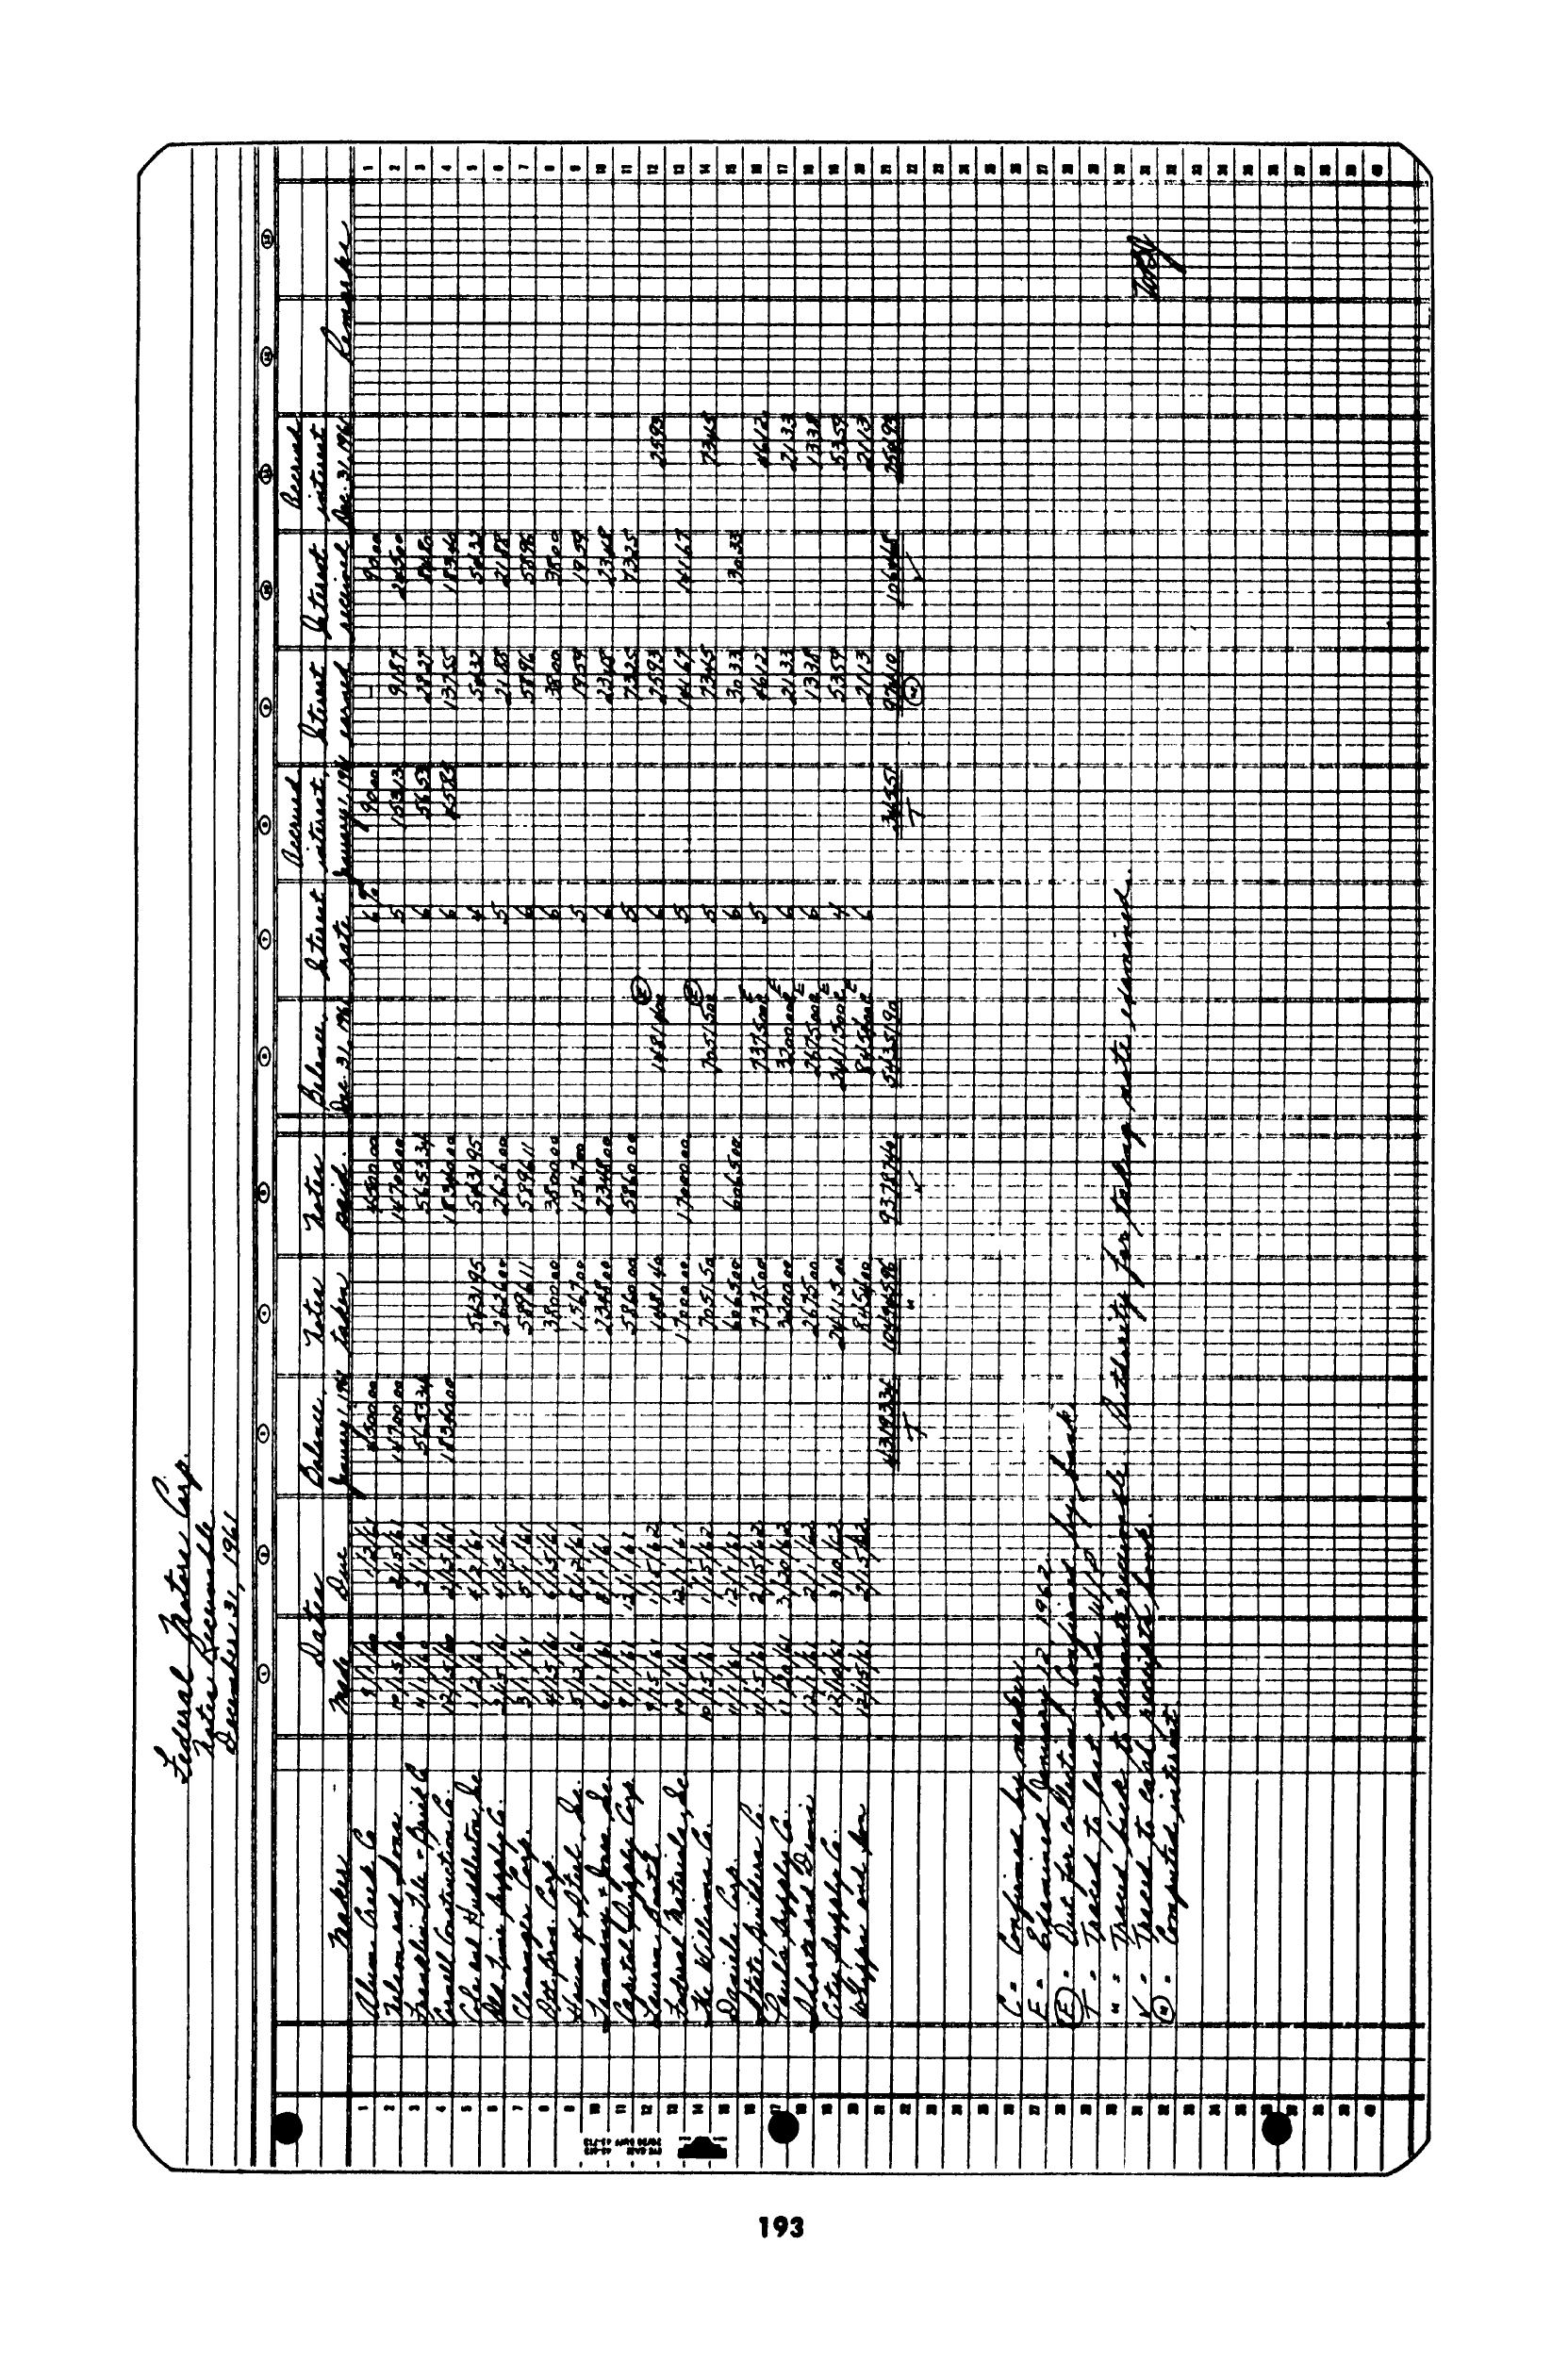 Federal Motors Corp.
Notes Receivable
December 31, 1961
Dates Balance, Notes Notes Balance, Interest Accrued interest, Interest Interest Accrued interest
Maker Made Due January 1, 1961 taken paid Dec. 31, 1961 rate January 1, 1961 earned received Dec. 31, 1961 Remarks
1 Alum Creek Co 1/2/61 4500.00 4500.00 6% 90.00 — 90.00 1
2 Nelson and Sons 10/15/60 2/15/61 14700.00 14700.00 5 153.13 91.87 245.00 2
3 Franklin Tile & Brick Co 2/1/61 5653.34 5653.34 6 56.53 28.27 84.80 3
4 Construction Co. 12/15/60 2/15/61 18340.00 18340.00 6 45.85 137.55 183.40 4
5 Colonel Huddleston, Inc 1/2/61 4/2/61 5431.95 5431.95 4 54.32 54.32 5
6 Old Time Supply Co. 2/15/61 4/15/61 2626.00 2626.00 5 21.88 21.88 6
7 Corp. 3/1/61 5/1/61 5896.11 5896.11 6 58.96 58.96 7
8 Ott Bros. Corp. 4/15/61 6/15/61 3800.00 3800.00 6 38.00 38.00 8
9 House of Steel, Inc. 5/12/61 8/12/61 1567.00 1567.00 5 19.59 19.59 9
10 & Sons, Inc. 6/1/61 8/1/61 2348.00 2348.00 6 23.48 23.48 10
11 Capital Supply Corp 9/1/61 12/1/61 5860.00 5860.00 5 73.25 73.25 11
12 9/15/61 1/15/62 1481.40 1481.40 Ⓔ 6 25.93 25.93 12
13 Federal Materials, Inc 10/1/61 12/1/61 17000.00 17000.00 5 141.67 141.67 13
14 The Williams Co. 10/15/61 1/15/62 7051.50 7051.50 Ⓔ 5 73.45 73.45 14
15 Daniels Corp. 11/1/61 12/1/61 6065.00 6065.00 6 30.33 30.33 15
16 State Builders Co. 11/15/61 2/15/62 7375.00 7375.00 E 5 46.12 46.12 16
17 Paul's Supply Co. 11/20/61 3/20/62 3200.00 3200.00 E 6 21.33 21.33 17
18 12/1/61 2/1/62 2675.00 2675.00 E 6 13.38 13.38 18
19 City Supply Co. 12/10/61 3/10/62 24115.00 24115.00 E 4 53.59 53.59 19
20 Whipps and Son 12/15/61 2/15/62 8454.00 8454.00 E 6 21.13 21.13 20
21 43193.34 104945.96 93787.40 54351.90 345.51 974.10 1064.68 254.93 21
22 T " ✓ T Ⓝ ✓ 22
C = Confirmed by maker
E = Examined January 12, 1962.
Ⓔ = Out for collection. Confirmed by bank.
T = Traced to last year's W/P
" = Traced back to accounts receivable. Authority for taking note examined.
✓ = Traced to cash receipts book.
Ⓝ = Computed interest.
193